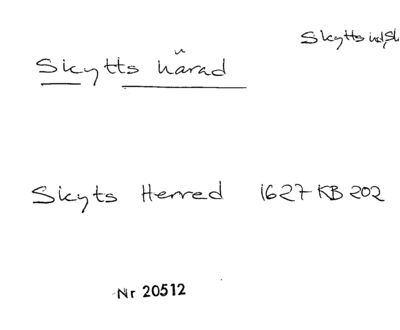 Skytts
Skytts härad
Skyts Herred 1627 KB 202
Nr 20512